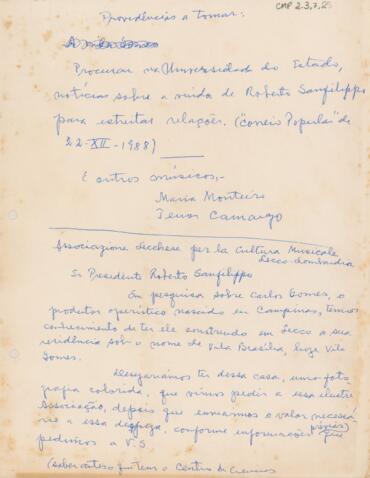 CMP 2.3.7.25
Providências a tomar:
Procurar na Universidade do Estado,
notícias sobre a vinda de Roberto Sanfilippo
para estreitar relações. ("Correio Popular" de
22-XII-1988)
E outros músicos,-
Maria Monteiro
Tenor Camargo
Associazione Lecchese per la Cultura Musicale,
Lecco-Lombardia
Sr Presidente Roberto Sanfilippo
Em pesquisa sobre Carlos Gomes, o
produtor operístico nascido em Campinas, temos
conhecimento de ter ele construido em Lecco a sua
residência sob o nome de Vila Brasilia, hoje Vila
Gomes.
Desejaríamos ter dessa casa, uma foto-
grafia colorida, que vimos pedir a essa ilustre
Associação, depois que enviarmos o valor necessá-
rio a essa despeza, conforme informações prévias que
pedimos a V.S.
(saber antes o que tem o Centro de Ciencias